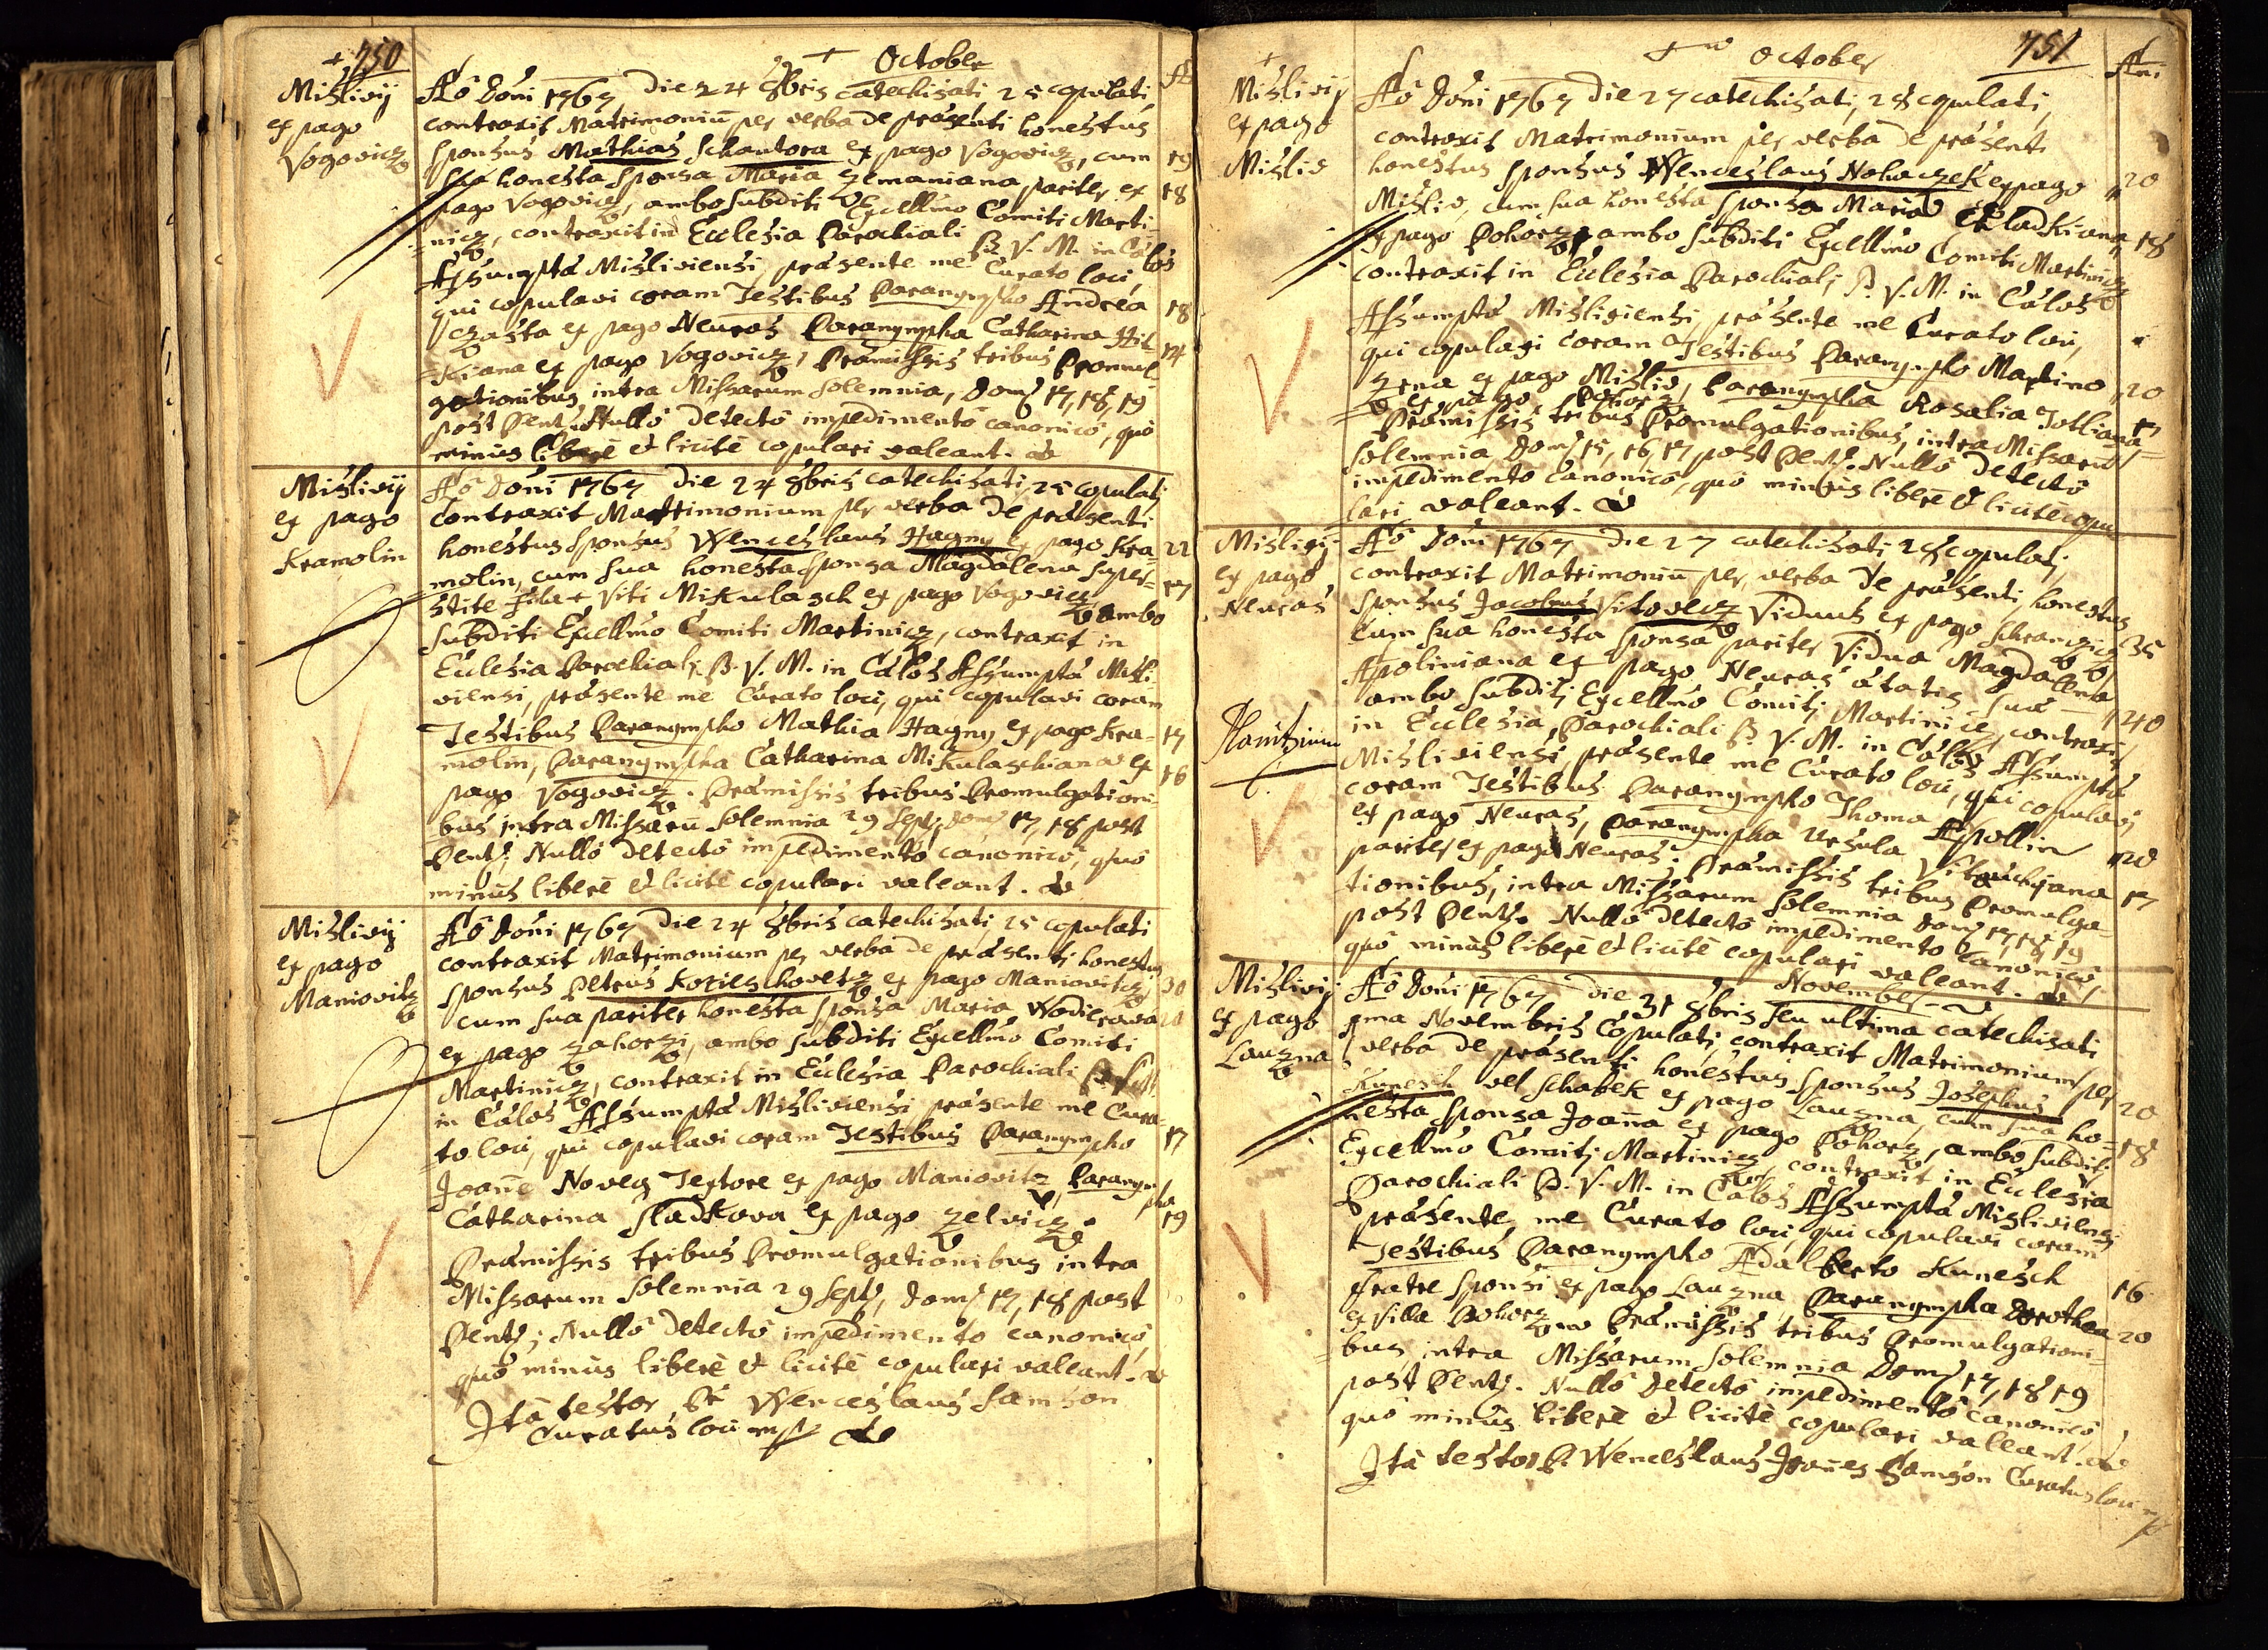 750
October
Mislivij
ex pago
Vogovicz
Aō Doni 1767 Die 24 8bris catechisati 25 copulati
contraxit Matrimoniū per verba de præsenti honestus
Sponsus Mathias Schantora ex pago Vogovicz, cum 19
sua honesta Sponsa Maria Zemaniana pariter ex 18
pago Vogovicz, ambo Subditi Excellmo Comiti Marti-
nicz, contraxit in Ecclesia Parochiali B. V. M. in Cælos
Assumptæ Misliviensi, præsente me Curato loci
qui copulavi coram Testibus Paranympho Andrea 18
ex pago Neuras Paranympha Catharina Hil- 14
Kiana ex pago Vogovicz, Præmissis tribus Promul-
gationibus intra Missarum Solemnia, Dom 17, 18, 19
post Pent: Nullō Detectō impedimentō canonicō, quō
minus liberē et licitē copulari valeant.
Mislivij
ex pago
Kramolin
Aō Doni 1767 Die 24 8bris catechisati, 25 copulati
Contraxit Matrimonium per verba De præsenti
honestus Sponsus Wenceslaus Hagny ex pago Kra- 22
molin, cum sua honesta Sponsa Magdalena super- 17
stite filia + Viti Mikulasch ex pago Vogovicz ambo
Subditi Excellmo Comiti Martinicz, contraxit in
Ecclesia Parochiali B. V. M. in Cælos Assumptæ Misli-
viensi, præsente me Curato loci, qui copulavi coram
Testibus Paranympho Mathia Hagny ex pago Kra- 17
molin, Paranympha Catharina Mikulaschiana ex 16
pago Vogovicz. Præmissis tribus Promulgationi-
bus intra Missarū Solemnia 29 Sept: Dom 17, 18 post
Pent: Nullō Detectō impedimentō canonicō, quō
minus liberē et licitē copulari valeant.
Mislivij
ex pago
Maniovitz
Aō Doni 1767 Die 24 8bris catechisati 25 copulati
contraxit Matrimonium per verba de præsenti honestus
Sponsus Petrus Korieschovetz ex pago Maniovitz 30
cum sua pariter honesta Sponsa Maria Wodierova 20
ex pago Zahorzi, ambo Subditi Excellmo Comiti
Martinicz, contraxit in Ecclesia Parochiali B. V. M.
in Cælos Assumptæ Misliviensi præsente me Cura-
to loci, qui copulavi coram Testibus Paranympho 17
Joañe Noveg Textore ex pago Maniovitz, Paranympha
Catharina Sladkova ex pago Zelvicz. 19
Præmissis tribus Promulgationibus intra
Missarum Solemnia 29 Sept, Dom 17, 18 post
Pent; Nullō Detectō impedimentō canonicō,
quō minus liberē et licitē copulari valeant.
Ita testor P: Wenceslaus Samson
Curatus loci mp
October 751
Añi
Mislivij
ex pago
Misliv
Aō Doni 1767 Die 27 catechisati, 28 copulati,
contraxit Matrimonium per verba De præsenti
honestus Sponsus Wenceslaus Nohaczek ex pago 20
Misliv, cum sua honesta Sponsa Maria Sladkiana 18
ex pago Pohorz, ambo Subditi Excellmo Comiti Martinicz
contraxit in Ecclesia Parochiali B. V. M. in Cælos
Assumptæ Misliviensi præsente me Curato loci,
qui copulavi coram Testibus Paranympho Martino 20
Zrna ex pago Misliv, Paranympha Rosalia 17
ex pago Pohorz Præmissis tribus Promulgationibus, intra Missarū
Solemnia Dom 15, 16, 17 post Pent: Nullō Detectō
impedimentō canonicō, quō minus liberē et licitē copu-
lari valeant.
Mislivij
ex pago
Neuras
Planitzium
Aō Doni 1767 Die 27 catechisati 28 copulati
contraxit Matrimoniū per verba De præsenti honestus
Sponsus Jacobus Vitovecz Viduus ex pago 35
Cum sua honesta Sponsa pariter Vidua Magdalena
Apoliniana ex pago Neuras ætatis suæ 40
ambo Subditi Excellmo Comiti Martinicz, contraxit
in Ecclesia Parochiali B. V. M. in Cælos Assumptæ
Misliviensi præsente me Curato loci, qui copulavi
coram Testibus Paranympho Thoma Appollin 20
ex pago Neuras, Paranympha Ursula 17
pariter ex pago Neuras. Præmissis tribus Promulga-
tionibus, intra Missarum Solemnia Dom 17, 18, 19
post Pent: Nullō Detectō impedimentō Canonicō,
quō minus liberē et licitē copulari valeant.
November
Mislivij
ex pago
Lauzna
Aō Doni 1767 Die 31 8bris seu ultima catechisati
1ma Novembris Copulati, contraxit Matrimonium per
verba De præsenti honestus Sponsus Josephus 20
Kunesch vel Schabek ex pago Lauzna, cum sua ho-
nesta Sponsa Joaña ex pago Pohorz, ambo Subditi 18
Excellmo Comiti Martinicz, contraxit in Ecclesia
Parochiali B. V. M. in Cælos Assumptæ Misliviensi
præsente me Curato loci, qui copulavi coram
Testibus Paranympho Adalberto Kunesch 16
fratre Sponsi ex pago Lauzna, Paranympha Dorothea 20
ex villa Pohorz Præmissis tribus Promulgationi-
bus, intra Missarum Solemnia Dom 17, 18 19
post Pent: Nullō Detectō impedimentō canonicō
quō minus liberē et licitē copulari valeant.
Ita testor P. Wenceslaus Joañes Samson Curatus loci mp